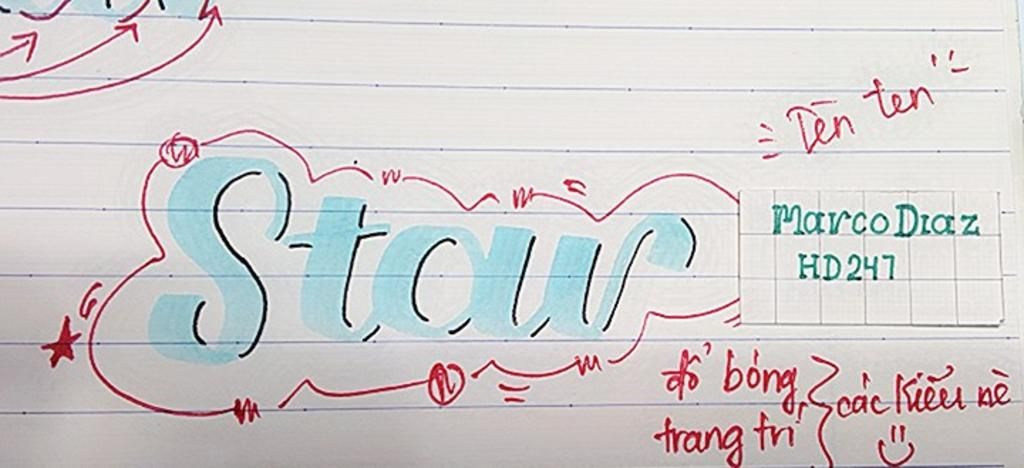 Tèn ten
Star
Marco Diaz
HD247
đổ bóng
trang trí
các kiểu nè